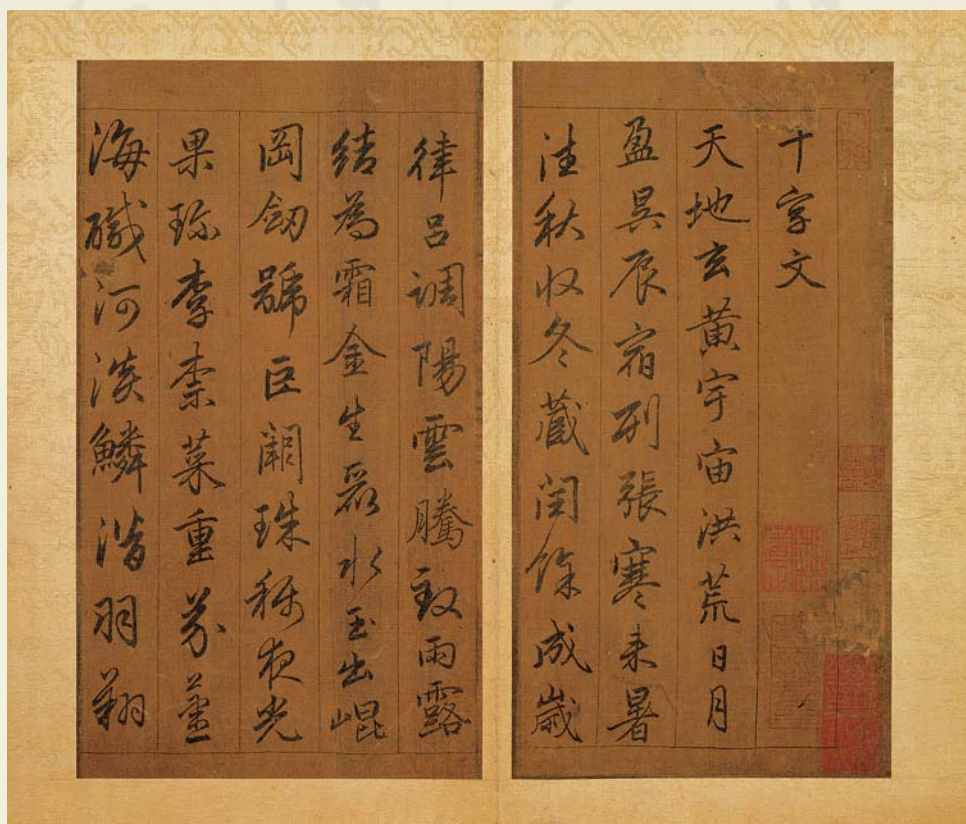 千字文
天地玄黄宇宙洪荒日月
盈昃辰宿列張寒来暑
往秋收冬藏閏餘成歲
律呂調陽雲騰致雨露
結為霜金生麗水玉出崐
岡劒號巨闕珠稱夜光
果珍李柰菜重芥薑
海醎河淡鱗潛羽翔